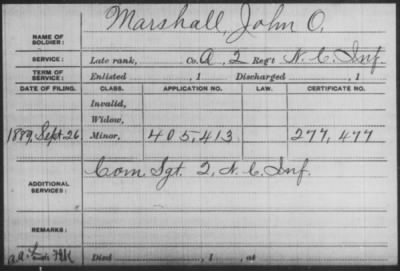 NAME OF SOLDIER: Marshall, John O.
SERVICE: Late rank, Co. A, 2 Reg't N. C. Inf.
TERM OF SERVICE: Enlisted , 1 Discharged , 1
DATE OF FILING. CLASS. APPLICATION NO. LAW. CERTIFICATE NO.
Invalid,
Widow,
1889, Sept 26 Minor, 405,413 277,477
ADDITIONAL SERVICES: Com Sgt. 2, N. C. Inf.
REMARKS:
Died , 1 , at